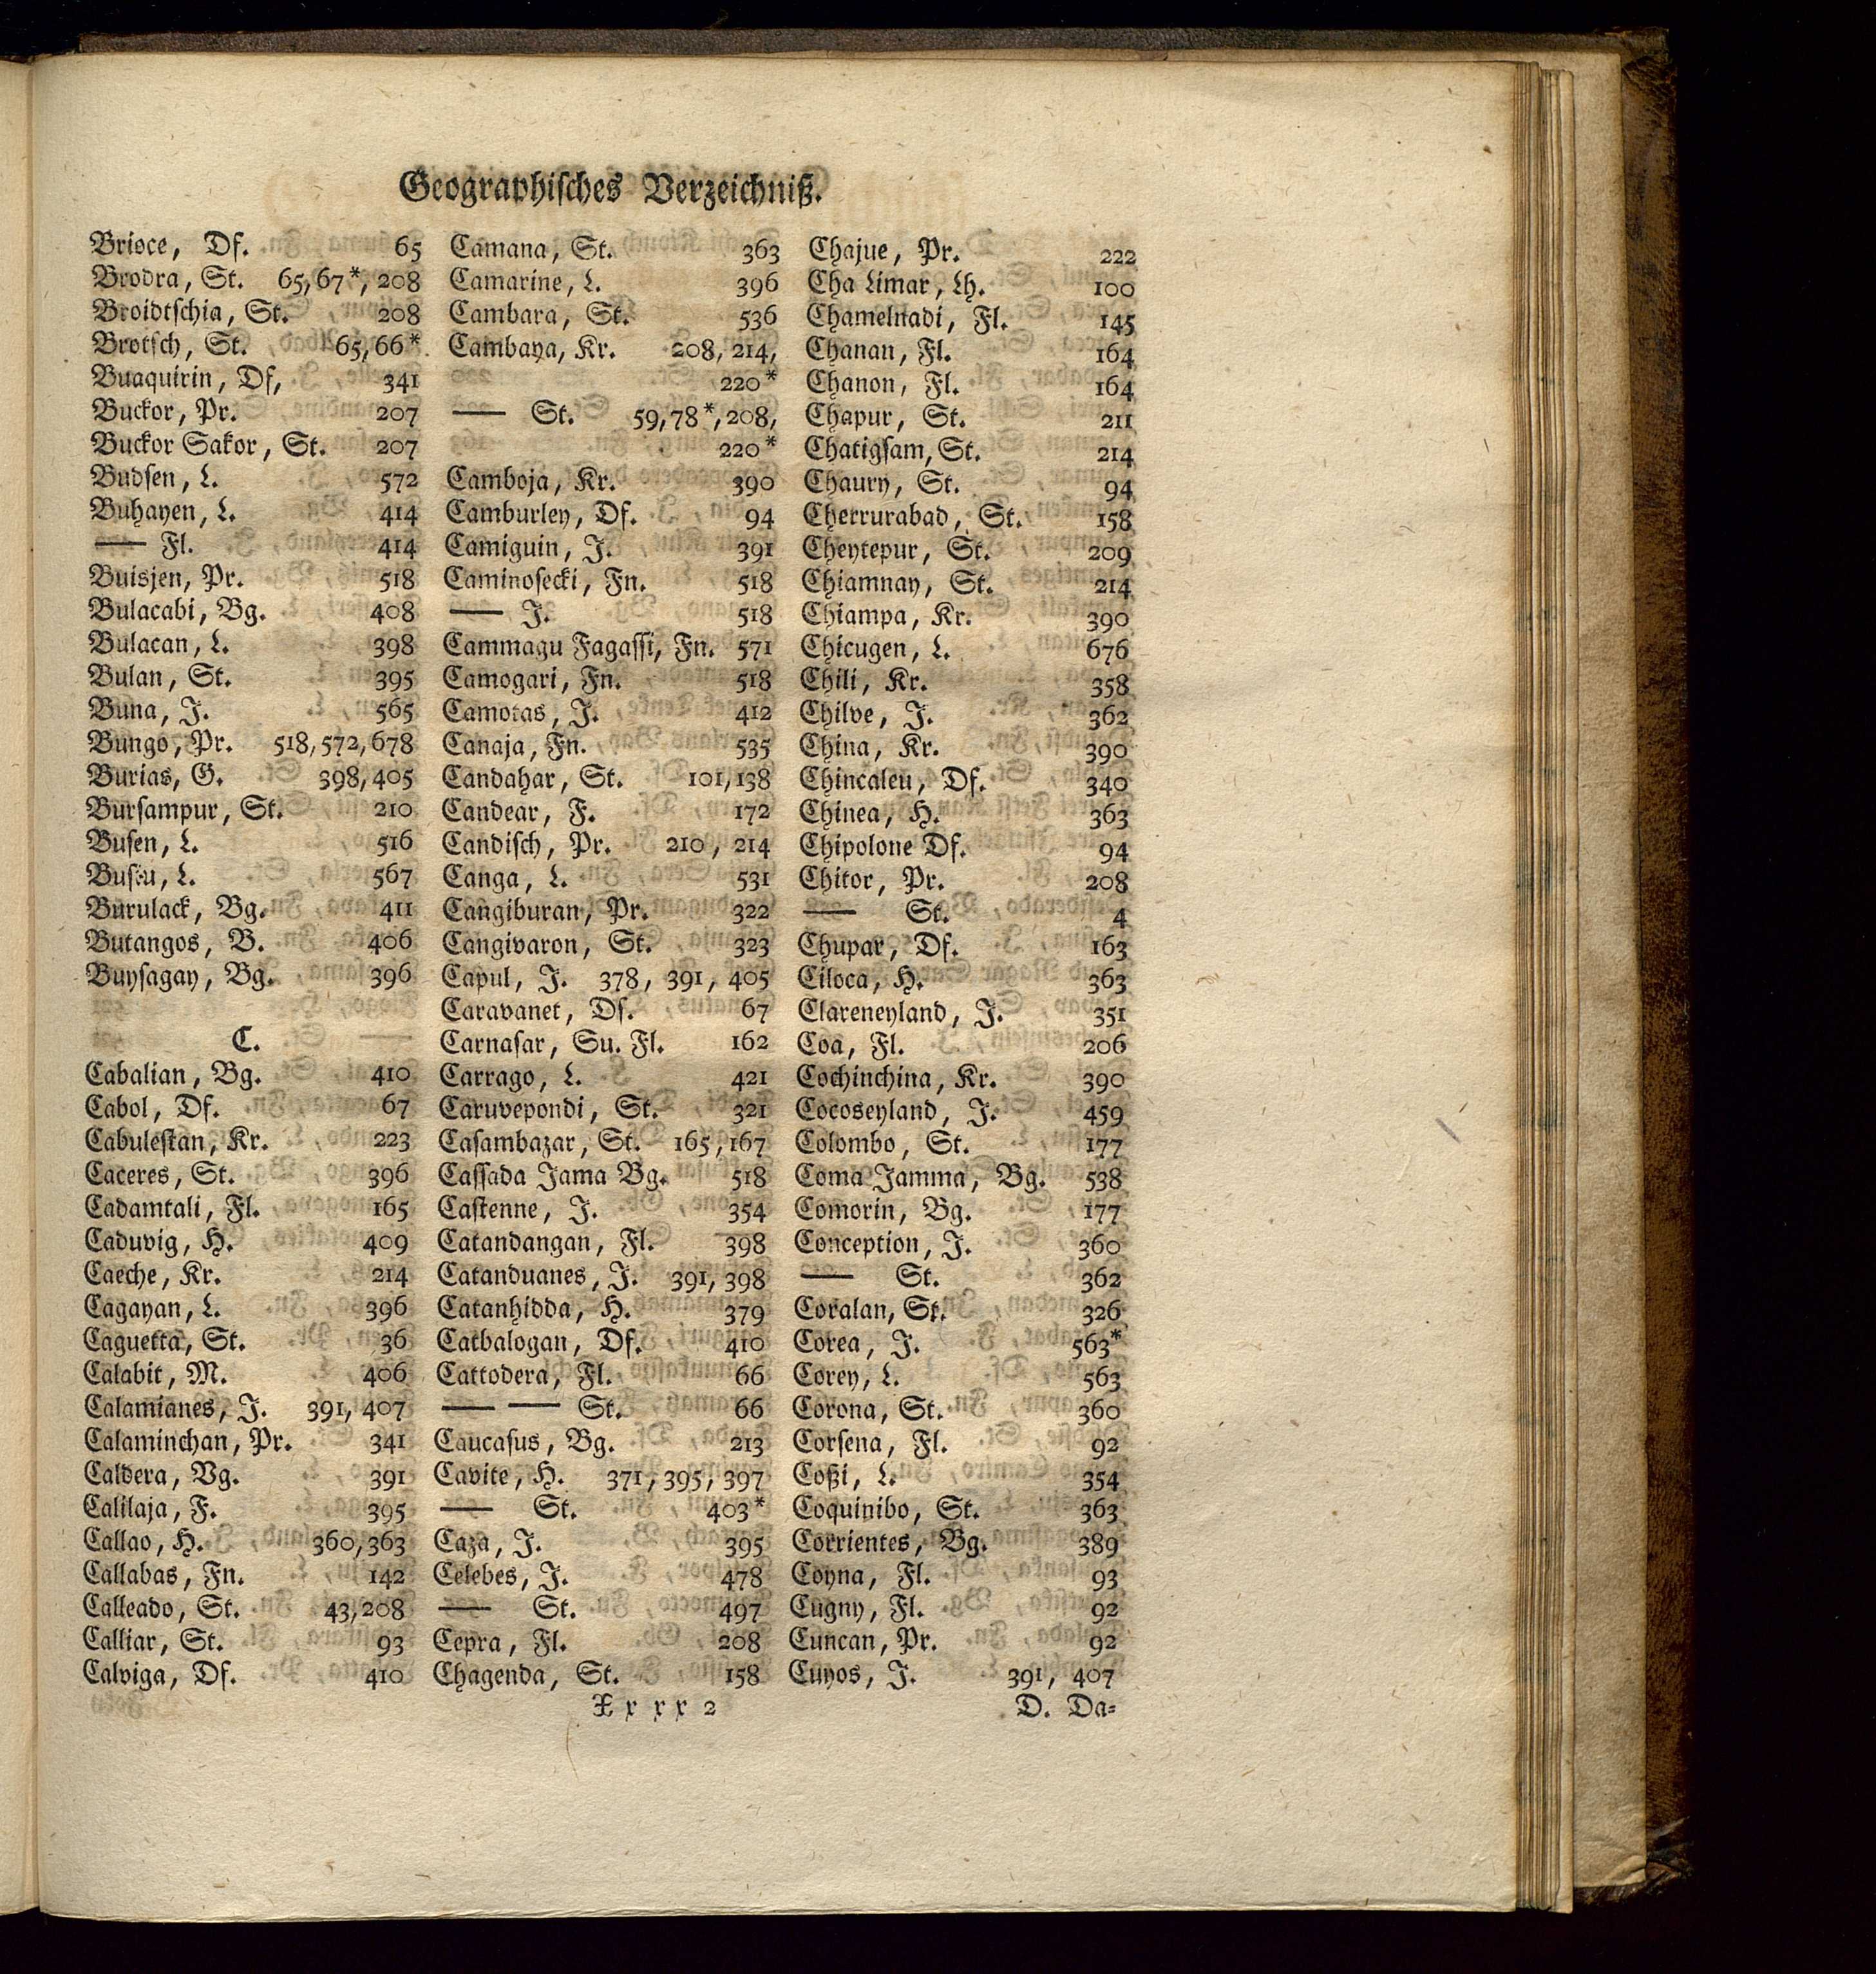 Geographisches Verzeichniß.
Brioce, Df. 65
Brodra, St. 65, 67*, 208
Broidtschia, St. 208
Brotsch, St. 65, 66*
Buaquirin, Df, 341
Buckor, Pr. 207
Buckor Sakor, St. 207
Budsen, L. 572
Buhayen, L. 414
—— Fl. 414
Buisjen, Pr. 518
Bulacabi, Bg. 408
Bulacan, L. 398
Bulan, St. 395
Buna, J. 565
Bungo, Pr. 518, 572, 678
Burias, G. 398, 405
Bursampur, St. 210
Busen, L. 516
L. 567
Burulack, Bg. 411
Butangos, B. 406
Buysagay, Bg. 396
C.
Cabalian, Bg. 410
Cabol, Df. 67
Cabulestan, Kr. 223
Caceres, St. 396
Cadamtali, Fl. 165
Caduvig, H. 409
Caeche, Kr. 214
Cagayan, L. 396
Caguetta, St. 36
Calabit, M. 406
Calamianes, J. 391, 407
Calaminchan, Pr. 341
Caldera, Vg. 391
Calilaja, F. 395
Callao, H. 360, 363
Callabas, Fn. 142
Calleado, St. 43, 208
Calliar, St. 93
Calviga, Df. 410
Camana, St. 363
Camarine, L. 396
Cambara, St. 536
Cambaya, Kr. 208, 214,
220*
—— St. 59, 78*, 208,
220*
Camboja, Kr. 390
Camburley, Df. 94
Camiguin, J. 391
Caminosecki, Fn. 518
—— J. 518
Cammagu Fagassi, Fn. 571
Camogari, Fn. 518
Camotas, J. 412
Canaja, Fn. 535
Candahar, St. 101, 138
Candear, F. 172
Candisch, Pr. 210, 214
Canga, L. 531
Cangiburan, Pr. 322
Cangivaron, St. 323
Capul, J. 378, 391, 405
Caravanet, Df. 67
Carnasar, Su. Fl. 162
Carrago, L. 421
Caruvepondi, St. 321
Casambazar, St. 165, 167
Cassada Jama Bg. 518
Castenne, J. 354
Catandangan, Fl. 398
Catanduanes, J. 391, 398
Catanhidda, H. 379
Catbalogan, Df. 410
Cattodera, Fl. 66
—— —— St. 66
Caucasus, Bg. 213
Cavite, H. 371, 395, 397
—— St. 403*
Caza, J. 395
Celebes, J. 478
—— St. 497
Cepra, Fl. 208
Chagenda, St. 158
Chajue, Pr. 222
Cha Limar, Lh. 100
Chamelnadi, Fl. 145
Chanan, Fl. 164
Chanon, Fl. 164
Chapur, St. 211
Chatigsam, St. 214
Chaury, St. 94
Cherrurabad, St. 158
Cheytepur, St. 209
Chiamnay, St. 214
Chiampa, Kr. 390
Chicugen, L. 676
Chili, Kr. 358
Chilve, J. 362
China, Kr. 390
Chincaleu, Df. 340
Chinea, H. 363
Chipolone Df. 94
Chitor, Pr. 208
—— St. 4
Chupar, Df. 163
Ciloca, H. 363
Clareneyland, J. 351
Coa, Fl. 206
Cochinchina, Kr. 390
Cocoseyland, J. 459
Colombo, St. 177
Coma Jamma, Bg. 538
Comorin, Bg. 177
Conception, J. 360
—— St. 362
Coralan, St. 326
Corea, J. 563*
Corey, L. 563
Corona, St. 360
Corsena, Fl. 92
Coßi, L. 354
Coquinibo, St. 363
Corrientes, Bg. 389
Coyna, Fl. 93
Cugny, Fl. 92
Cuncan, Pr. 92
Cuyos, J. 391, 407
Xxxx 2
D. Da=